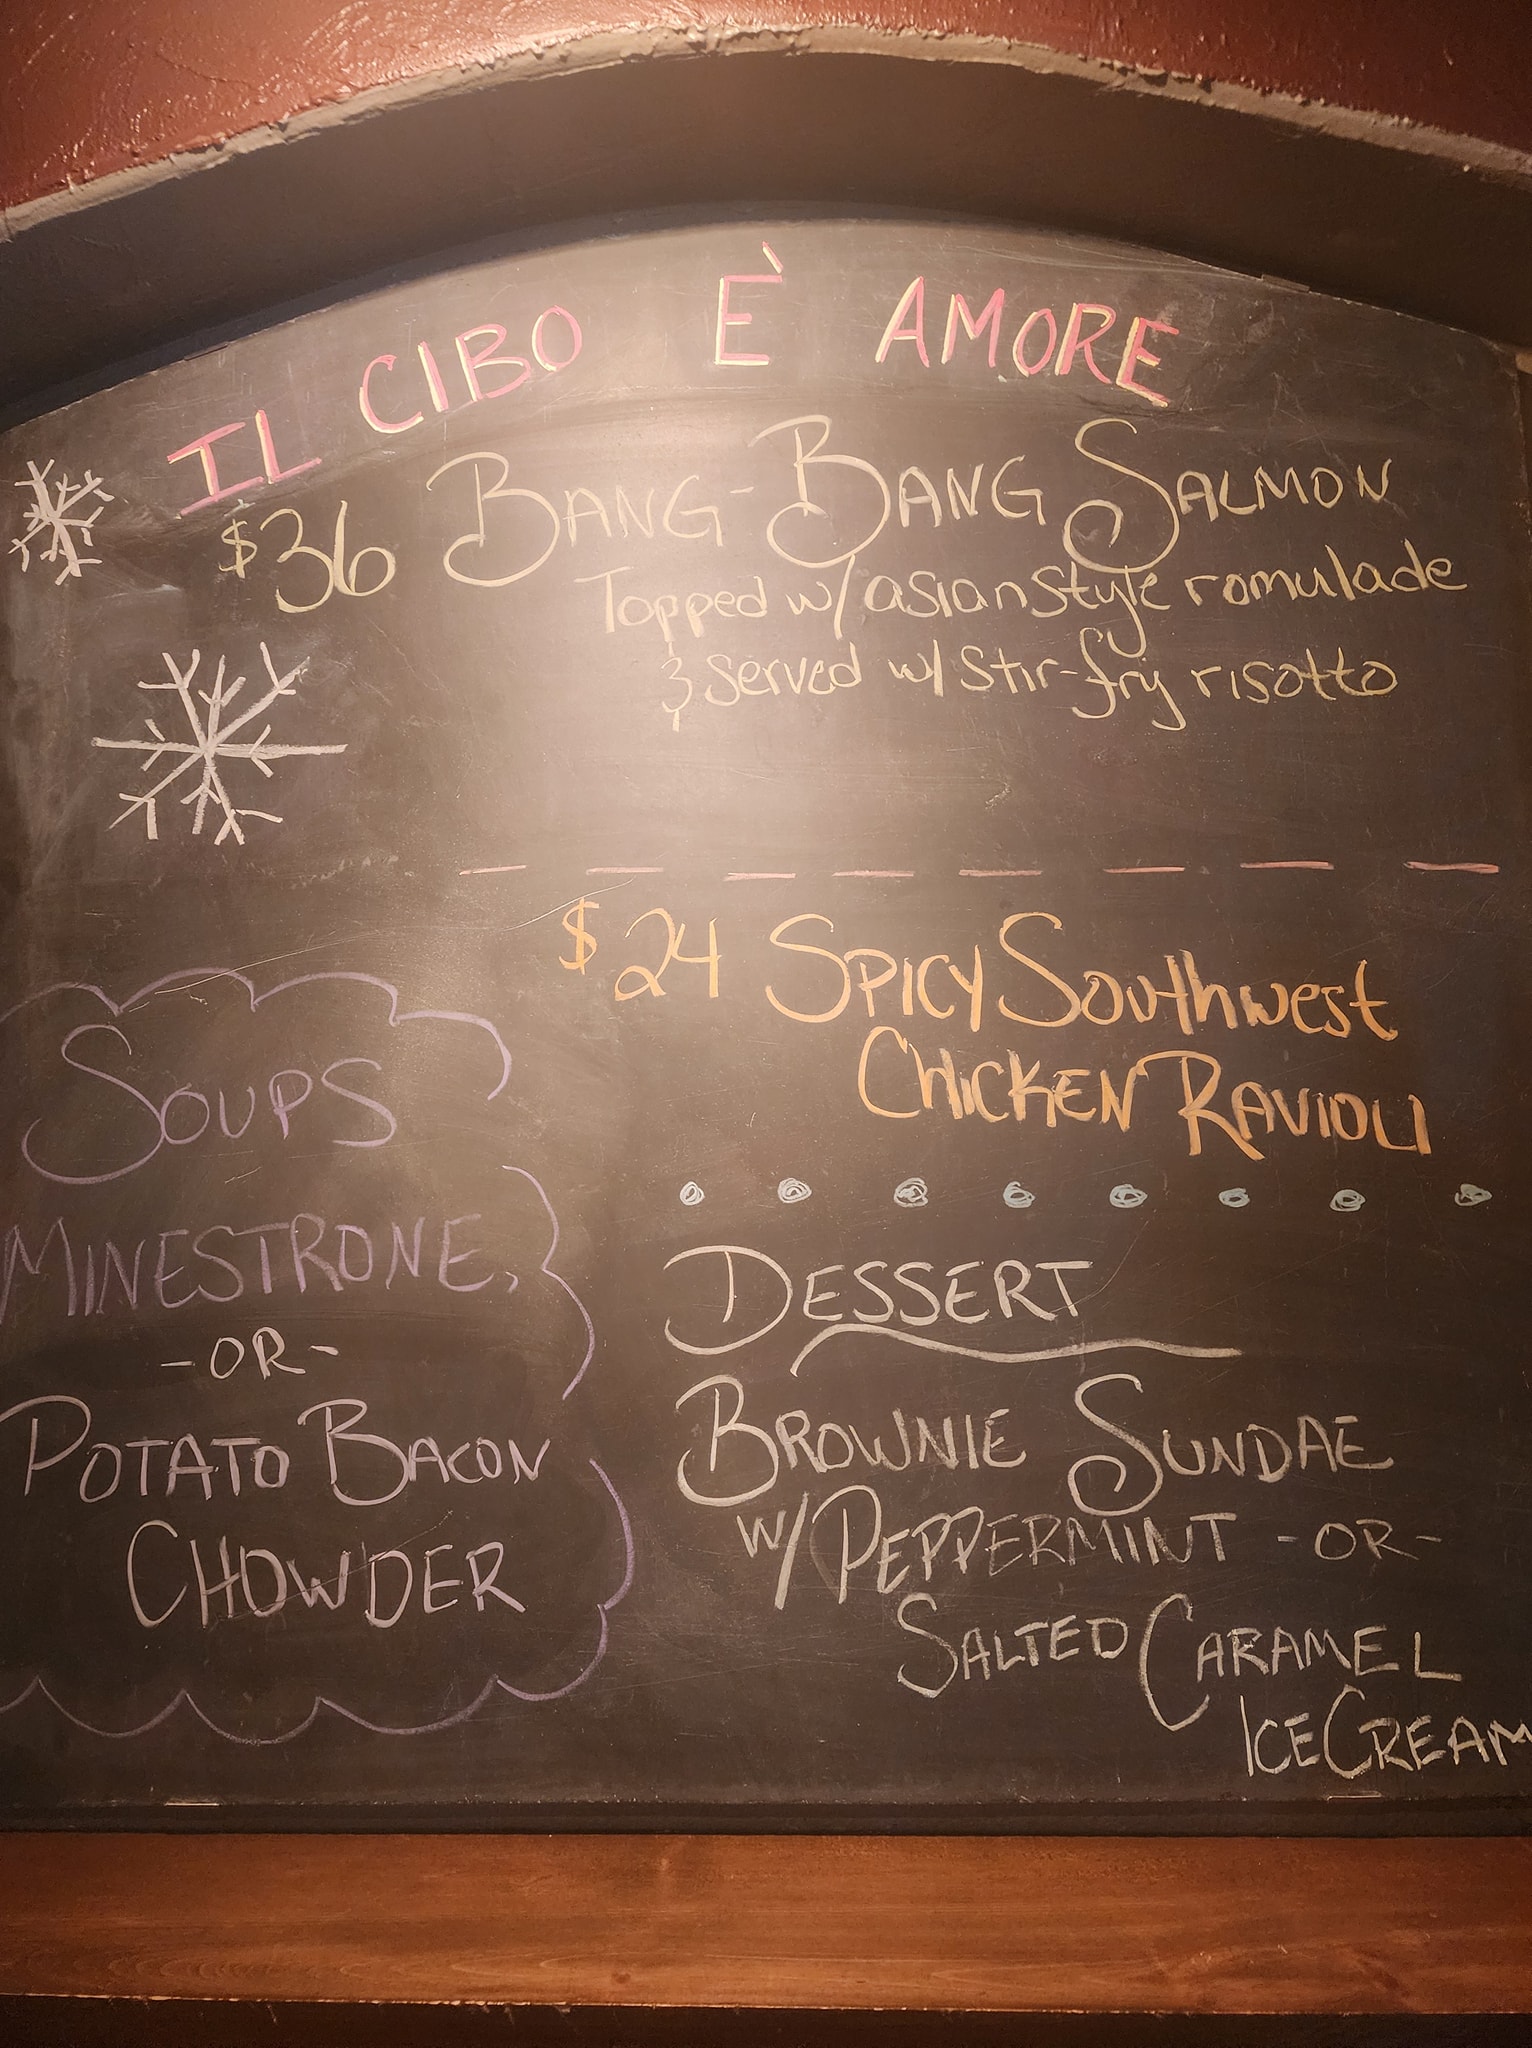 IL CIBO È AMORE
$36 BANG-BANG SALMON
Topped w/ asian style romulade
& served w/ stir-fry risotto
$24 SPICY Southwest
CHICKEN RAVIOLI
SOUPS
MINESTRONE,
-OR-
POTATO BACON
CHOWDER
DESSERT
BROWNIE SUNDAE
W/ PEPPERMINT -OR-
SALTED CARAMEL
ICE CREAM